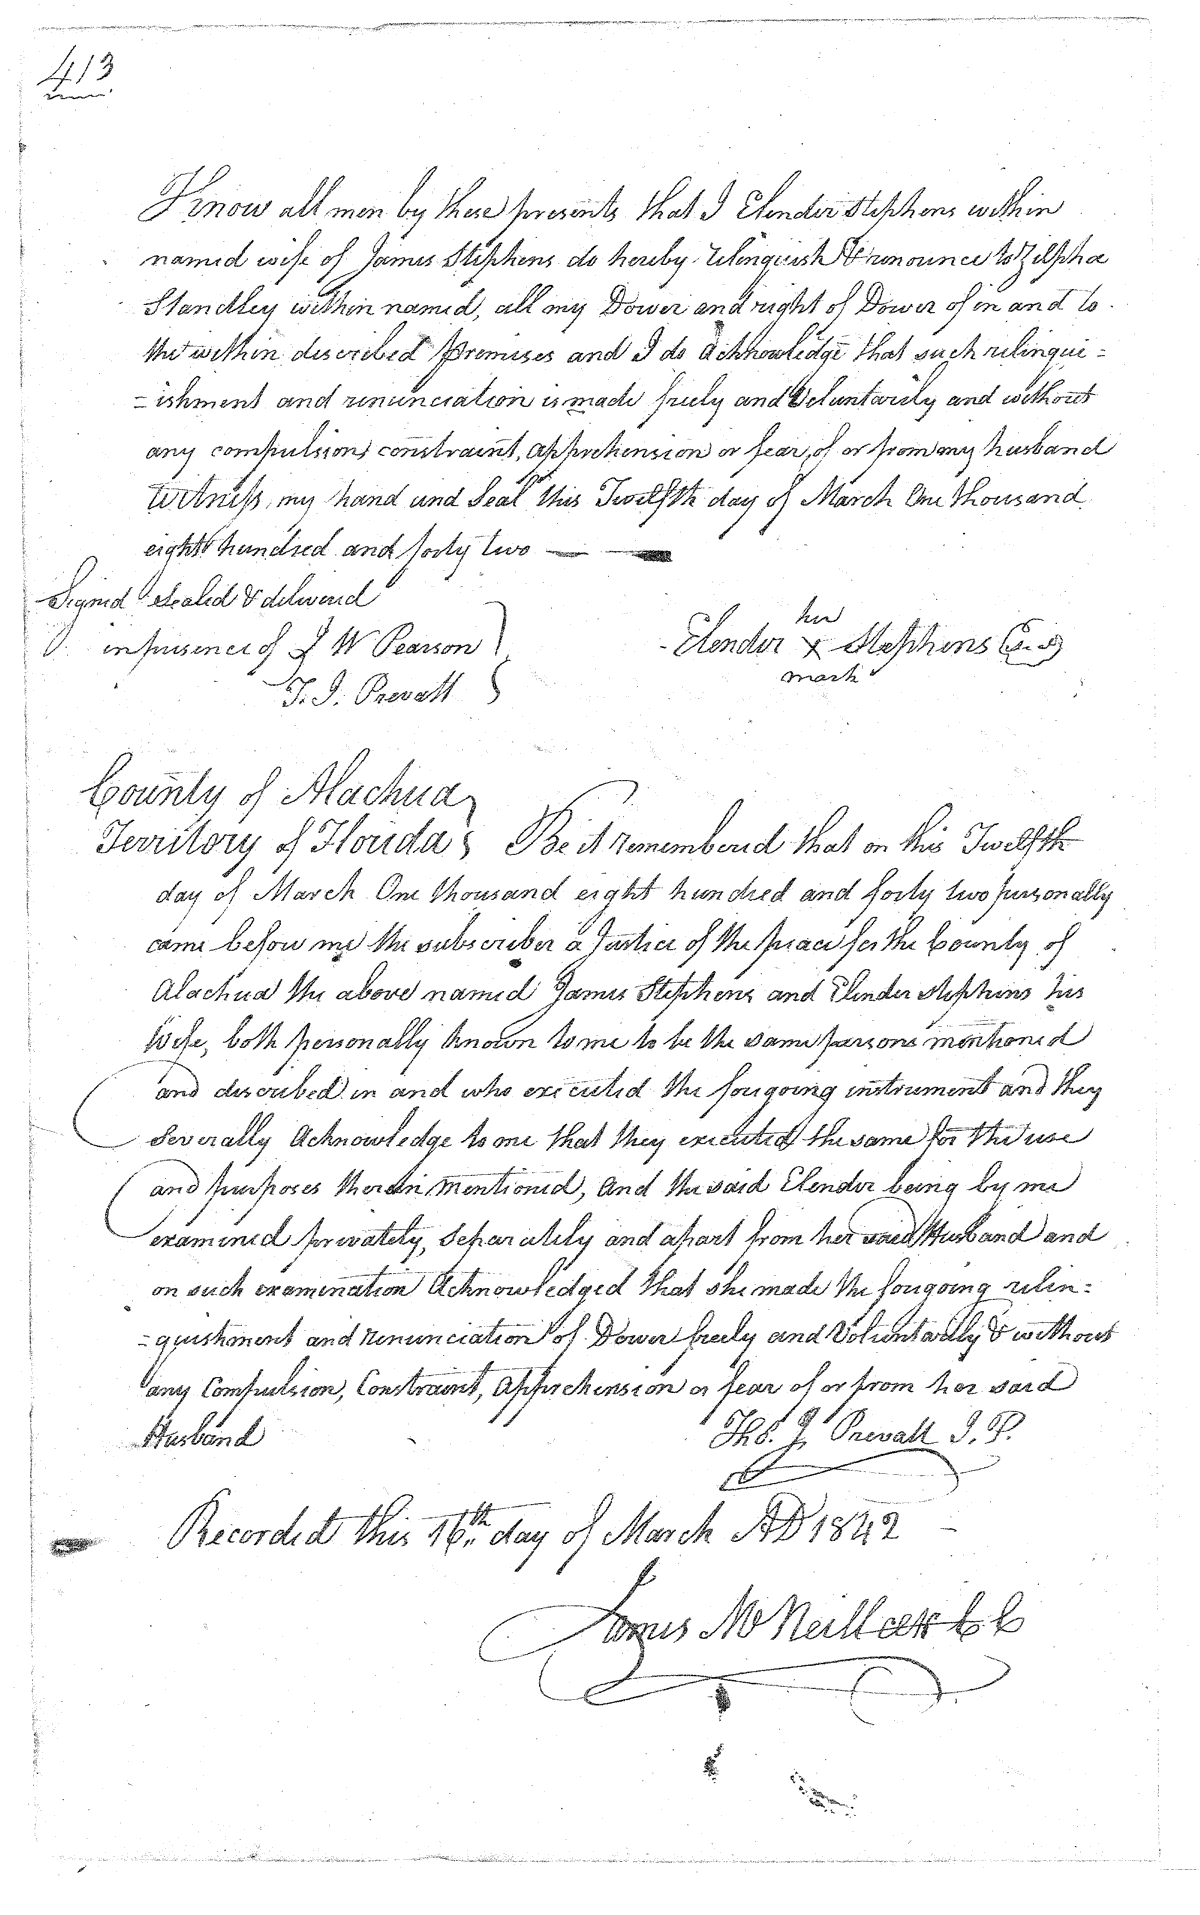 413
Know all men by these presents that I Elender Stephens within
named wife of James Stephens do hereby relinquish & renounce to Zilpha
Standley within named, all my Dower and right of Dower of in and to
the within described Premises and I do acknowledge that such relinqui=
=ishment and renunciation is made freely and Voluntarily and without
any compulsion, constraint, apprehension or fear, of or from my husband
Witness my hand and Seal this Twelfth day of March One thousand
eight hundred and forty two
Signed Sealed & delivered
in presence of J W Pearson
T. J. Prevatt
her
Elender X Stephens
mark
County of Alachua
Territory of Florida Be it remembered that on this Twelfth
day of March One thousand eight hundred and forty two personally
came before me the subscriber a Justice of the peace for the County of
Alachua the above named James Stephens and Elender Stephens his
Wife, both personally known to me to be the same persons mentioned
and described in and who executed the foregoing instrument and they
Severally Acknowledge to me that they executed the same for the use
and purposes therein mentioned, and the said Elender being by me
examined privately, Separately and apart from her said Husband and
on such examination Acknowledged that she made the foregoing relin=
=quishment and renunciation of Dower freely and Voluntarily & without
any Compulsion, Constraint, Apprehension or fear of or from her said
Husband
Ths. J. Prevatt J. P.
Recorded this 16th day of March AD 1842
James McNeill C C